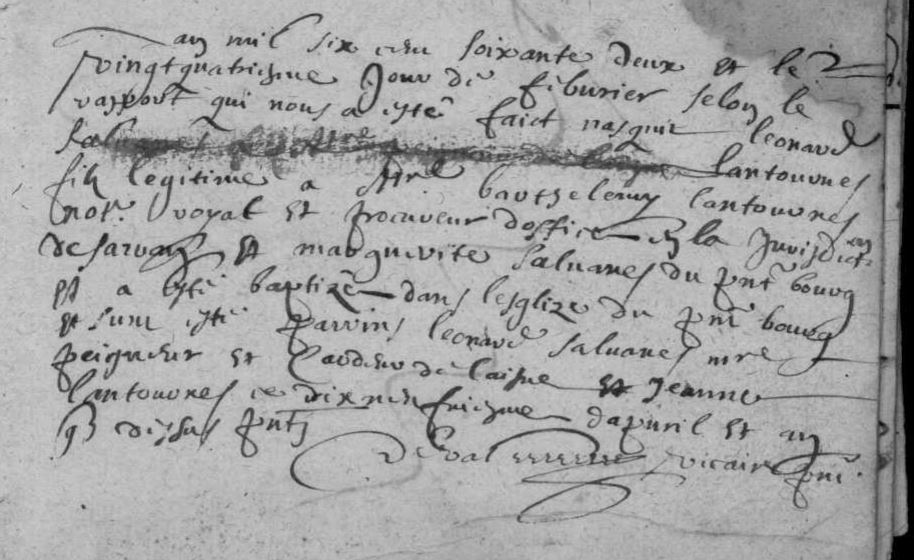 an mil six cen soixante deux et le
vingtquatriesme jour de feburier selon le
rapport qui nous a esté faict nasquit leonard
Lantournes
filz legitime a Mre barthelemy lantournes
notre royal et procureur doffice en la jurisdicon
de sarvan et marguerite saluanes du pnt bourg
et a esté baptizé dans lesglize du pnt bourg
et sont esté parrins leonard saluanes mre
peigneur et cardeur de laisne et Jeanne
lantournes ce dix neufviesme dapuril et an
q dessus pnts
Deval vicaire pnt